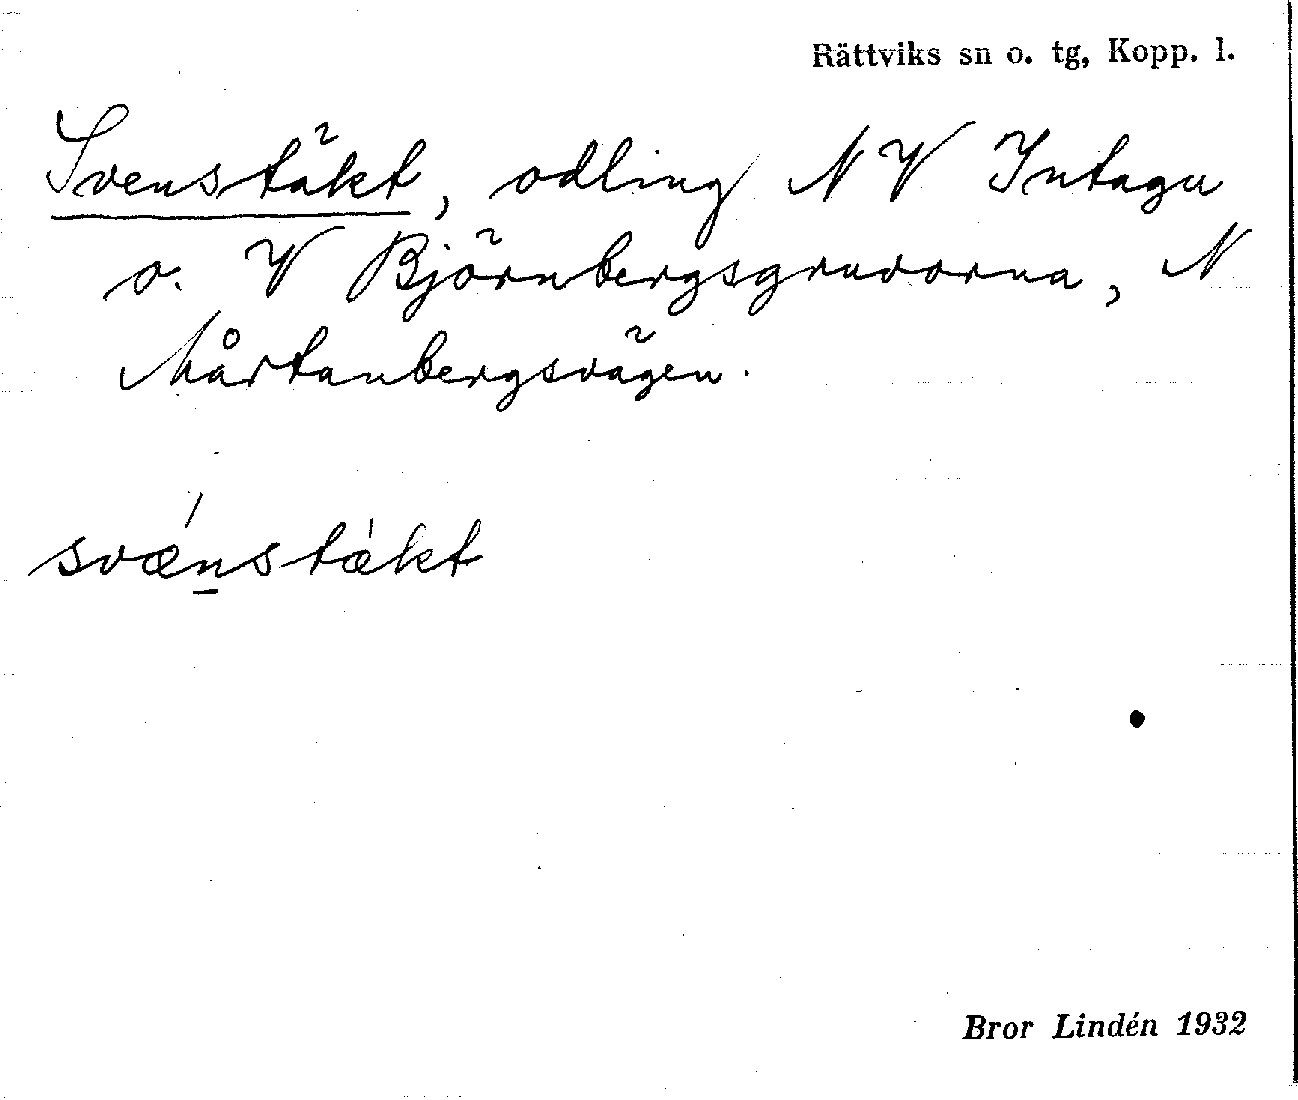 Rättviks sn o. tg, Kopp. l.
Svenstäkt, odling NV Intagu
o. V Björnbergsgruvorna, N
Mårtanbergsvägen.
svænstækt
Bror Lindén 1932